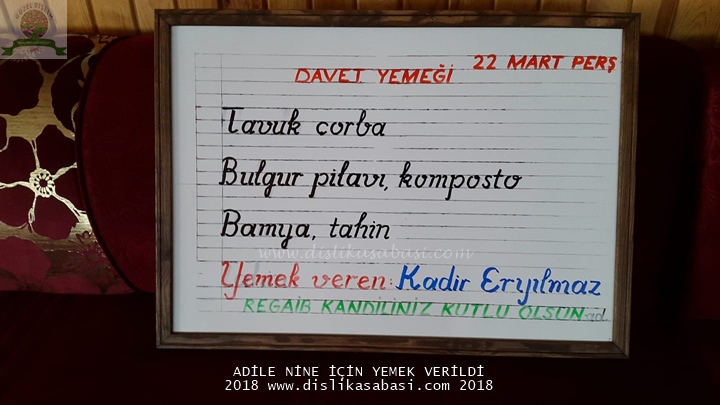 22 MART PERŞ
DAVET YEMEĞİ
Tavuk corba
Bulgur pilavı, komposto
Bamya, tahin
www.dislikasabasi.com
Yemek veren: Kadir Eryılmaz
REGAİB KANDİLİNİZ KUTLU OLSUN ad.
ADİLE NİNE İÇİN YEMEK VERİLDİ
2018 www.dislikasabasi.com 2018